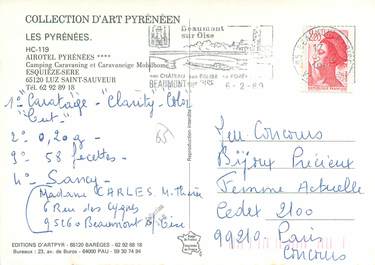 COLLECTION D'ART PYRÉNÉEN
LES PYRÉNÉES.
HC-119
AIROTEL PYRÉNÉES ****
Camping Caravaning et Caravaneige Mobilhome
ESQUIÈZE-SERE
65120 LUZ SAINT-SAUVEUR
Tél. 62 92 89 18
Beaumont
sur Oise
son CHÂTEAU son EGLISE sa FORÊT
BEAUMONT
6-2-89
2,20
1° "Caratage - "Clarity - Color
"Cut"
2° 0,20 g
3° 58 facettes
4° Sancy
65
Madame CARLES M. Thérèse
6 Rue des Cygnes
95260 Beaumont S/Oise
Jeu Concours
Bijoux Précieux
Femme Actuelle
Cedex 2100
99210 Paris
Concours
EDITIONS D'ARTPYR - 65120 BARÈGES - 62 92 68 18
Bureaux : 23, av. de Buros - 64000 PAU - 59 30 74 94